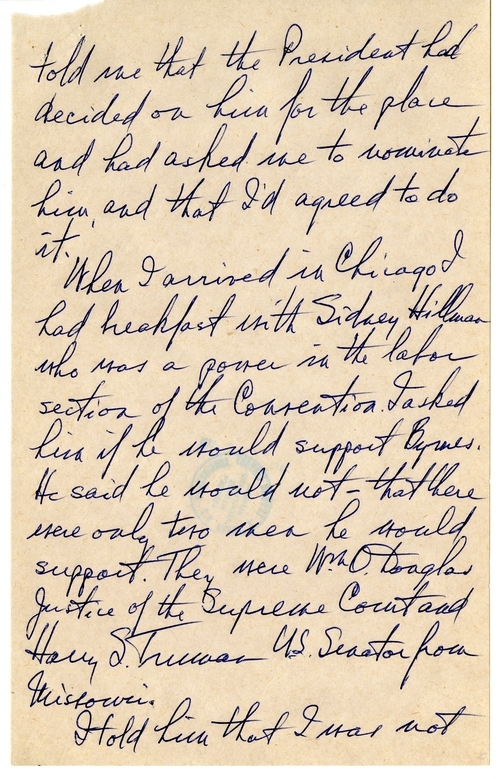 told me that the President had
decided on him for the place
and had asked me to nominate
him, and that I'd agreed to do
it.
When I arrived in Chicago I
had breakfast with Sidney Hillman
who was a power in the labor
section of the Convention. I asked
him if he would support Byrnes.
He said he would not - that there
were only two men he would
support. They were Wm O. Douglas
Justice of the Supreme Court and
Harry S. Truman U.S. Senator from
Missouri.
I told him that I was not